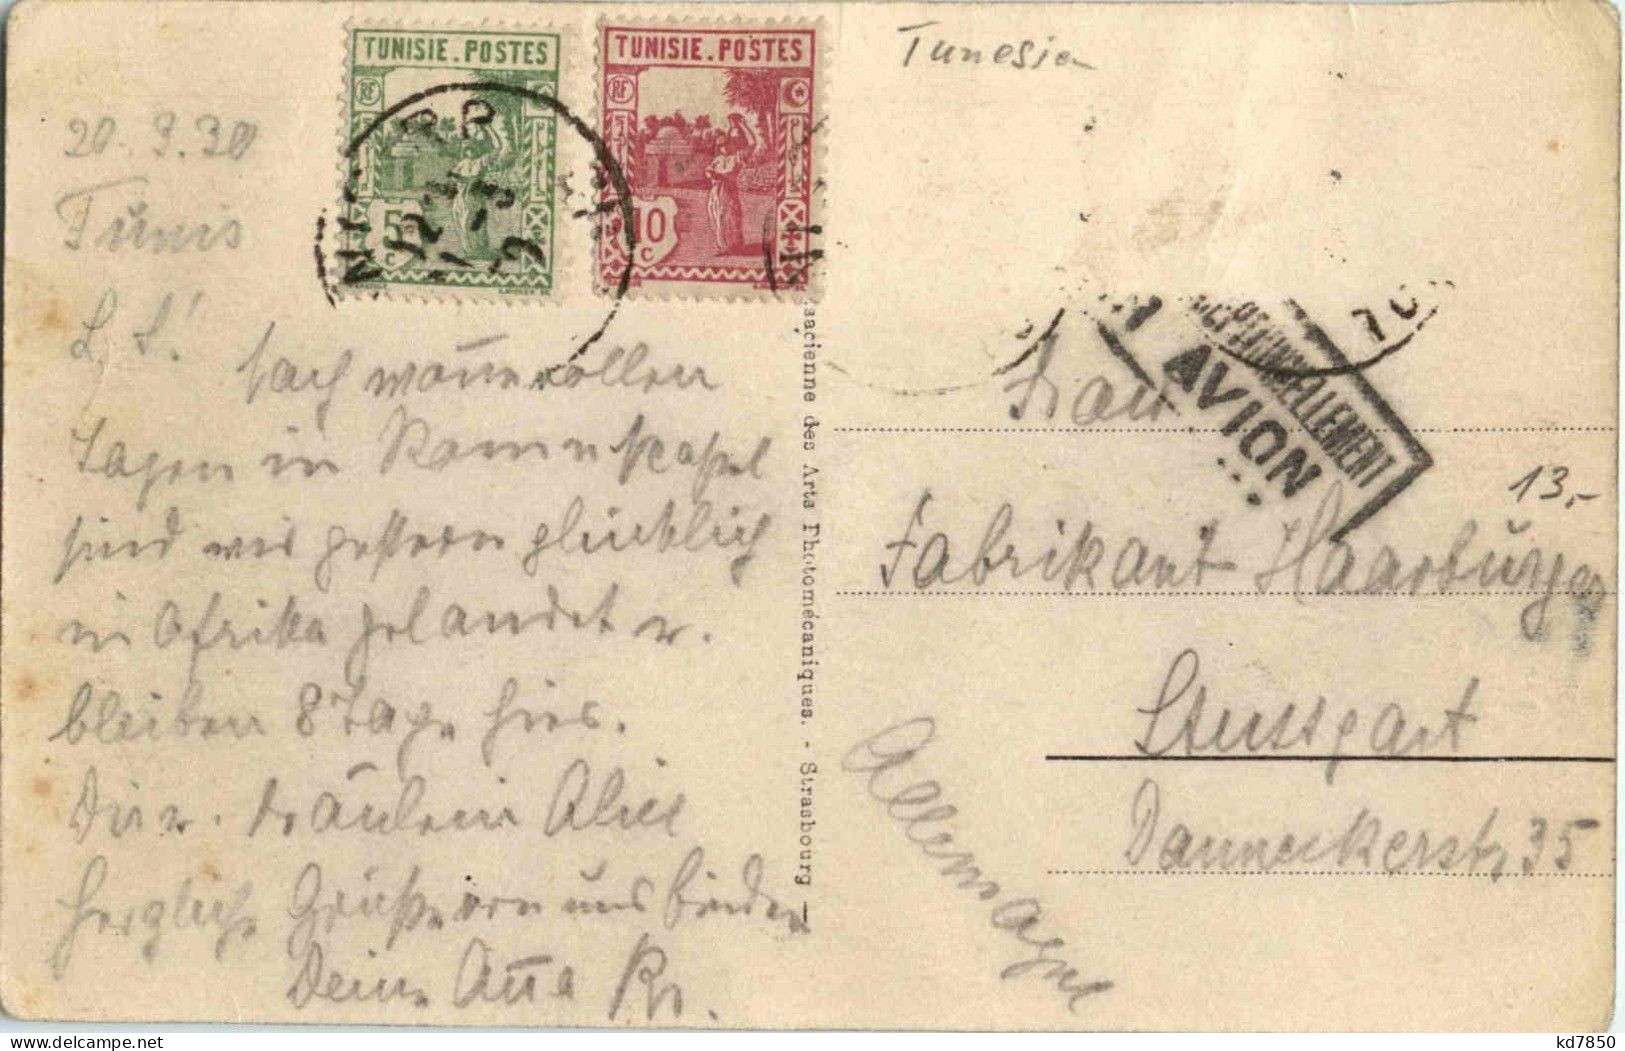 TUNISIE.POSTES
RF
5
c
TUNISIE.POSTES
RF
10
c
Tunesien
20.3.30
Tunis
L. L.!
Nach wonnevollen
Tagen in
sind wir gestern glücklich
in Afrika gelandet u.
bleiben 8 Tage hier.
Dir u. Fräulein Alice
herzliche Grüße von uns beiden
Deine
alsacienne des Arts Photomécaniques. - Strasbourg
EXCEPTIONNELLEMENT
AVION
Frau
13,-
Fabrikant Haarburger
Stuttgart
Danneckerstr 35
Allemagne
kd7850